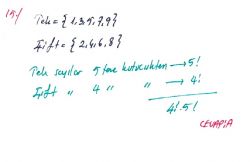 15/ Tek = {1,3,5,7,9}
Çift = {2,4,6,8}
Tek sayılar 5 tane kutucuktan → 5!
Çift " 4 " " → 4!
4!.5!
CEVAPLA